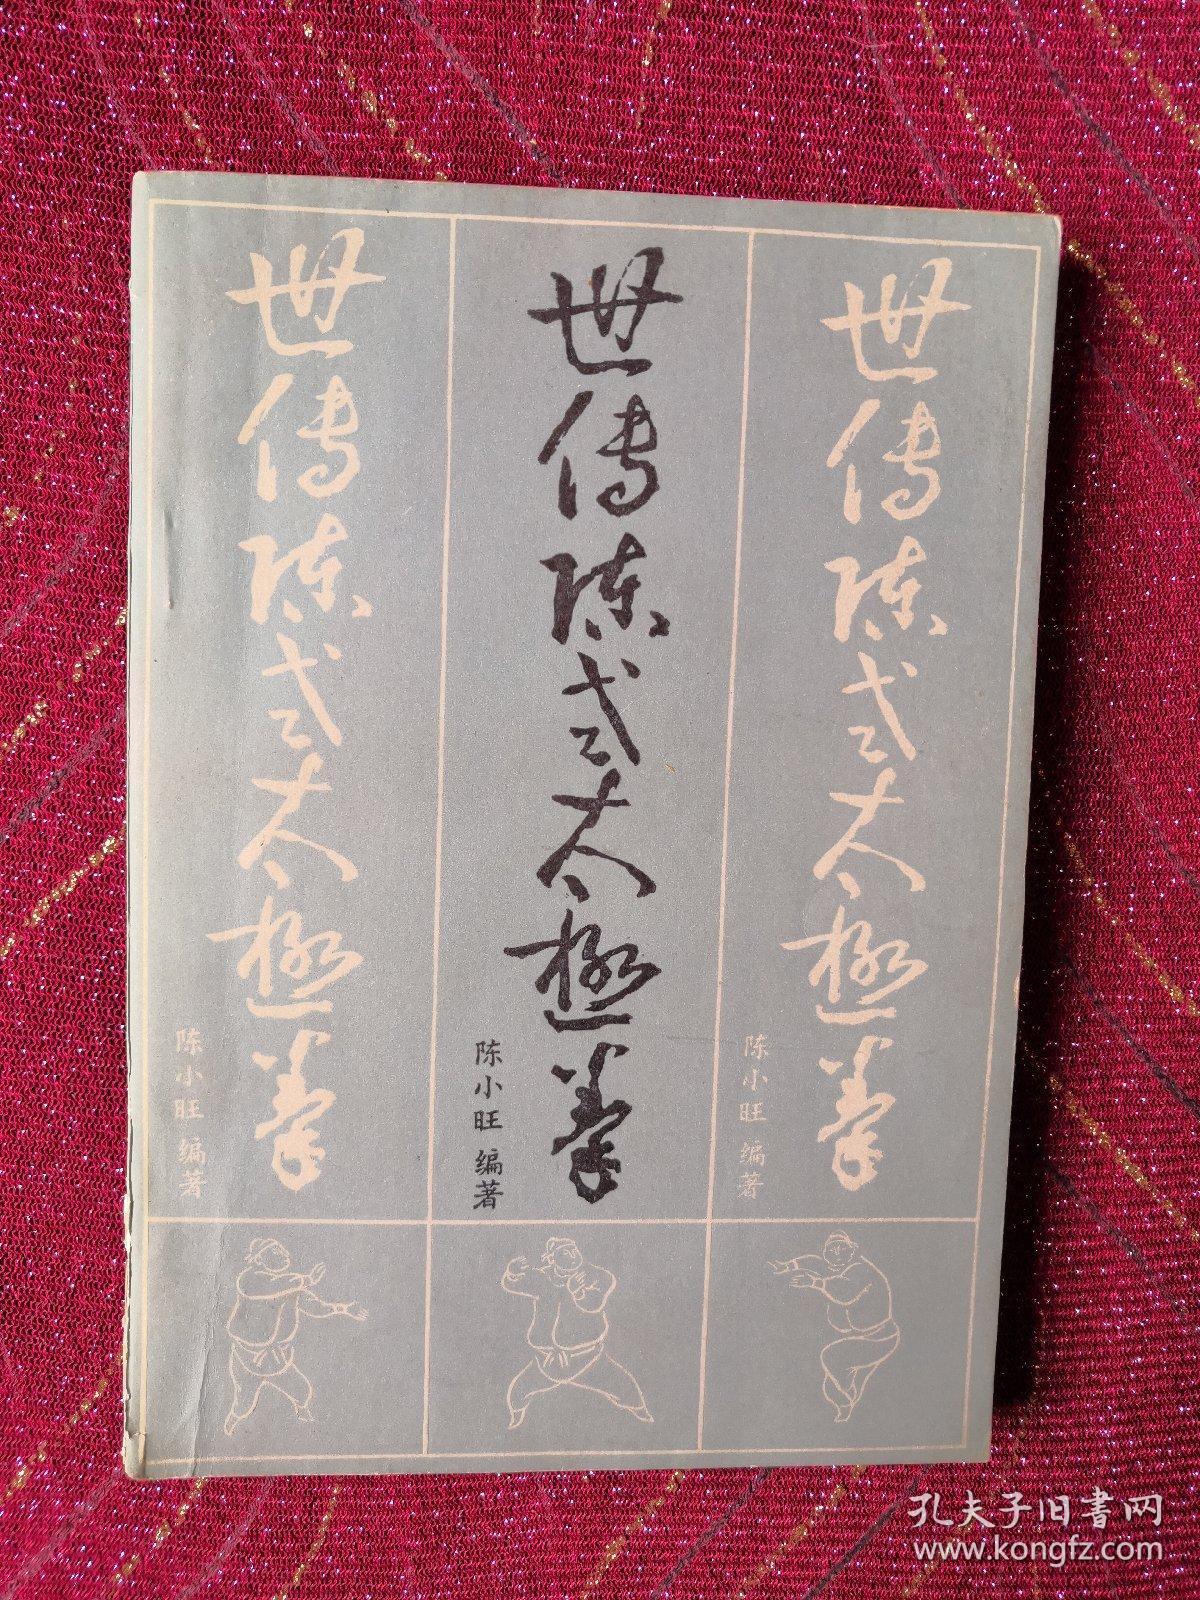 世传陈式太极拳
陈小旺 编著
世传陈式太极拳
陈小旺 编著
世传陈式太极拳
陈小旺 编著
孔夫子旧書网
www.kongfz.com